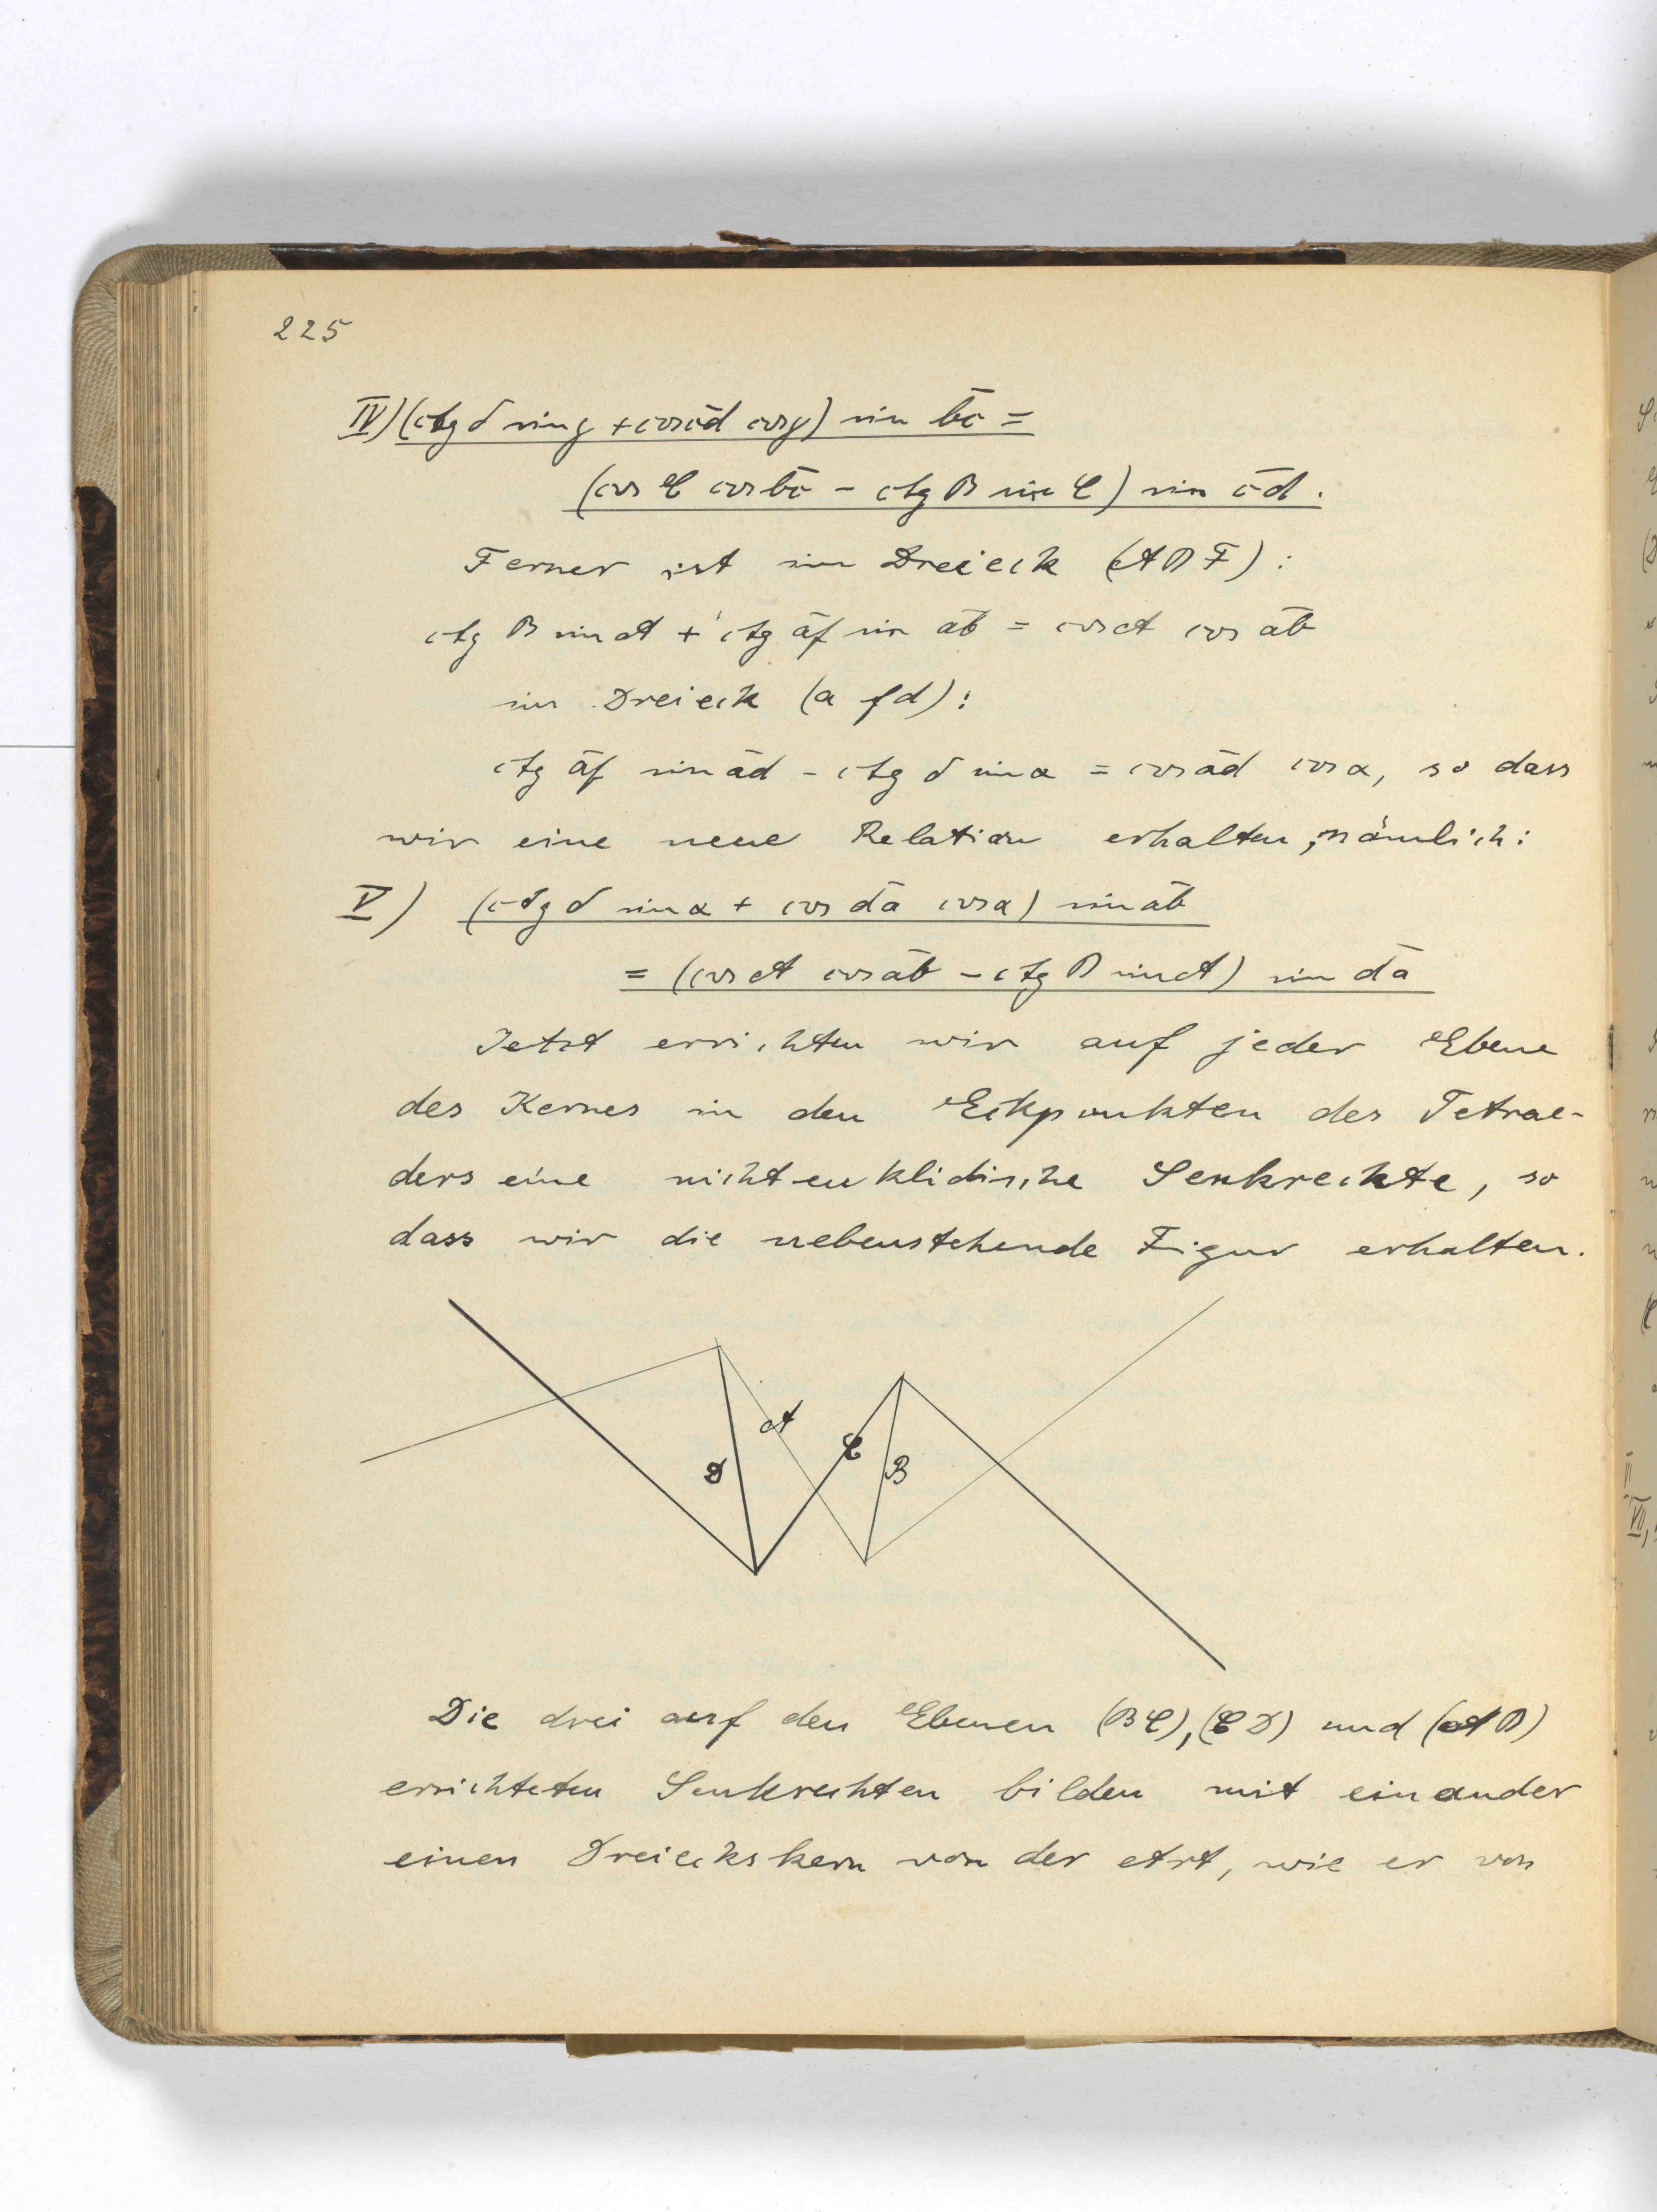 225
IV) (ctg δ sin γ + cos c̄d̄ cos γ) sin b̄c̄ =
(cos C cos b̄c̄ – ctg B sin C) sin c̄d̄.
Ferner ist im Dreieck (A B F):
ctg B sin A + ctg āf̄ sin āb̄ = cos A cos āb̄
im Dreieck (a f d):
ctg āf̄ sin ād̄ – ctg δ sin α = cos ād̄ cos α, so dass
wir eine neue Relation erhalten, nämlich:
V) (ctg δ sin α + cos d̄ā cos α) sin āb̄
= (cos A cos āb̄ – ctg B sin A) sin d̄ā
Jetzt errichten wir auf jeder Ebene
des Kernes in den Eckpunkten des Tetrae-
ders eine nichteuklidische Senkrechte, so
dass wir die nebenstehende Figur erhalten.
A
C
D
B
Die drei auf den Ebenen (B C), (C D) und (A B)
errichteten Senkrechten bilden mit einander
einen Dreieckskern von der Art, wie er von